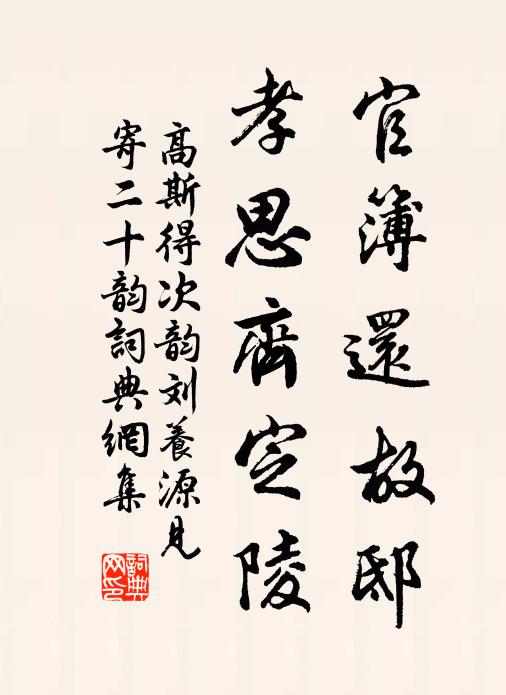 官簿還故邸
孝思齊定陵
高斯得次韵刘養源見
寄二十韵詞典網集
詞典網印